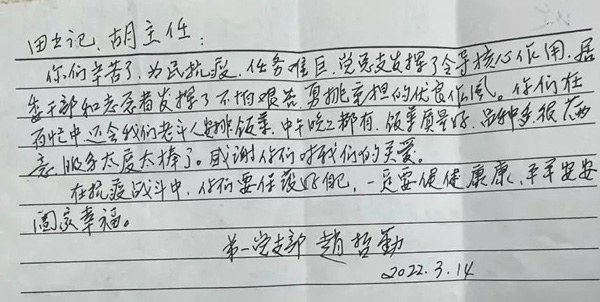 田书记、胡主任：
你们辛苦了，为民抗疫，任务艰巨，党总支发挥了领导核心作用，居
委干部和志愿者发挥了不怕艰苦，勇挑重担的优良作风。你们在
百忙中，还会我们老斗人安排饭菜，中午晚上都有，饭菜质量好，品种多，很
意，服务太度太棒了。感谢你们对我们的关爱。
在抗疫战斗中，你们要保护好自己，一定要健健康康、平平安安
阖家幸福。
第一党支部 赵哲勤
2022.3.14